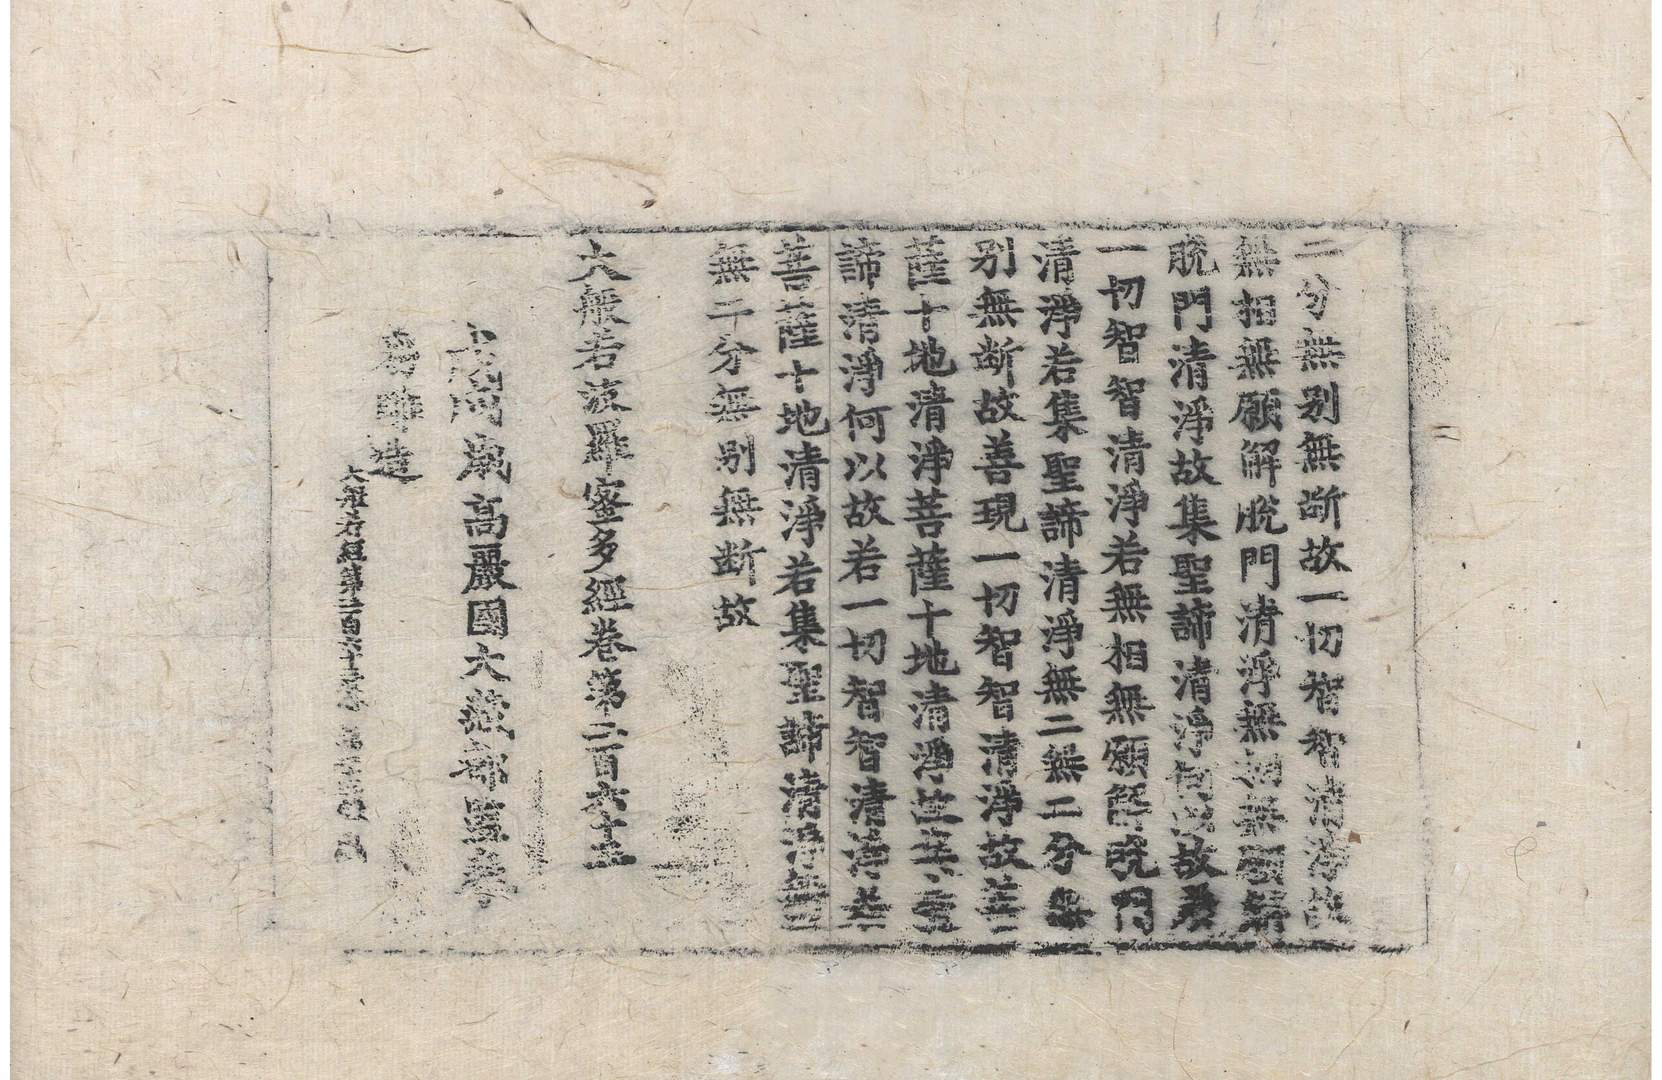 二分無別無断故一切智智清淨故
無相無願解脫門清淨無相無願解
脫門清淨故集聖諦清淨何以故若
一切智智清淨若無相無願解脫門
清淨若集聖諦清淨無二無二分無
別無断故善現一切智智清淨故菩
薩十地清淨菩薩十地清淨故集聖
諦清淨何以故若一切智智清淨若
菩薩十地清淨若集聖諦清淨無二
無二分無別無断故
大般若波羅蜜多經卷第二百六十三
歳高麗國大藏都監奉
勑雕造
大般若經第二百六十三卷